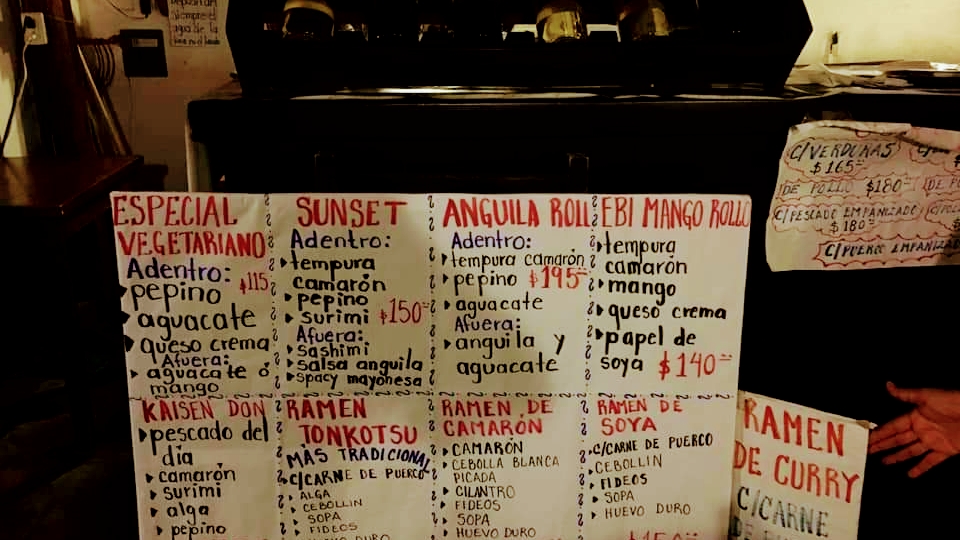 siempre el
agua de la
C/VERDURAS
$165
DE POLLO $180
C/PESCADO EMPANIZADO
$180
C/PUERCO EMPANIZADO
ESPECIAL
VEGETARIANO
Adentro:
pepino $115
aguacate
queso crema
Afuera:
aguacate ó
mango
SUNSET
Adentro:
tempura
camarón
pepino
surimi $150
Afuera:
sashimi
salsa anguila
spacy mayonesa
ANGUILA ROLL
Adentro:
tempura camarón
pepino $195
aguacate
Afuera:
anguila y
aguacate
EBI MANGO ROLLO
tempura
camarón
mango
queso crema
papel de
soya $140
KAISEN DON
pescado del
día
camarón
surimi
alga
pepino
RAMEN
TONKOTSU
MÁS TRADICIONAL
C/CARNE DE PUERCO
ALGA
CEBOLLIN
SOPA
FIDEOS
HUEVO DURO
RAMEN DE
CAMARÓN
CAMARÓN
CEBOLLA BLANCA
PICADA
CILANTRO
FIDEOS
SOPA
HUEVO DURO
RAMEN DE
SOYA
C/CARNE DE PUERCO
CEBOLLIN
FIDEOS
SOPA
HUEVO DURO
RAMEN
DE CURRY
C/CARNE